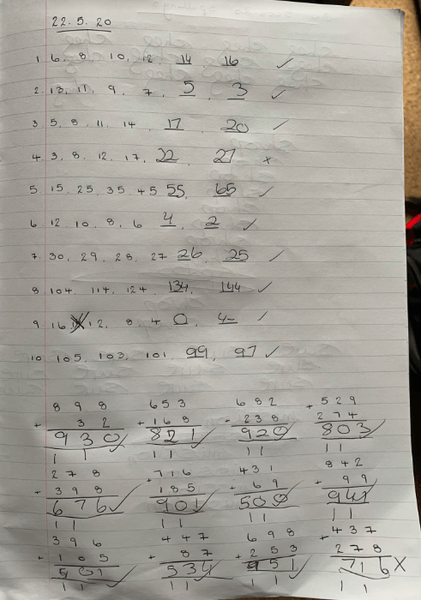 22.5.20
1. 6, 8, 10, 12 14 16 ✓
2. 13, 11, 9, 7, 5, 3 ✓
3. 5, 8, 11, 14, 17, 20 ✓
4. 3, 8, 12, 17, 22, 27 x
5. 15, 25, 35, 45 55, 65 ✓
6. 12, 10, 8, 6 4, 2 ✓
7. 30, 29, 28, 27 26 25 ✓
8. 104, 114, 124 134, 144 ✓
9. 16, 12, 8, 4 0, ✓
10. 105, 103, 101, 99, 97 ✓
898 653 682 + 529
+ 32 + 168 + 238 274
930 821 920 803
1 1 1 1 1 1 1 1
278 + 716 431 842
+ 398 185 + 69 + 99
676 ✓ 901 ✓ 500 ✓ 941
1 1 1 1 1 1 1 1
396 447 698 + 437
+ 105 + 87 + 253 278
501 ✓ 534 ✓ 951 ✓ 716 x
1 1 1 1 1 1 1 1